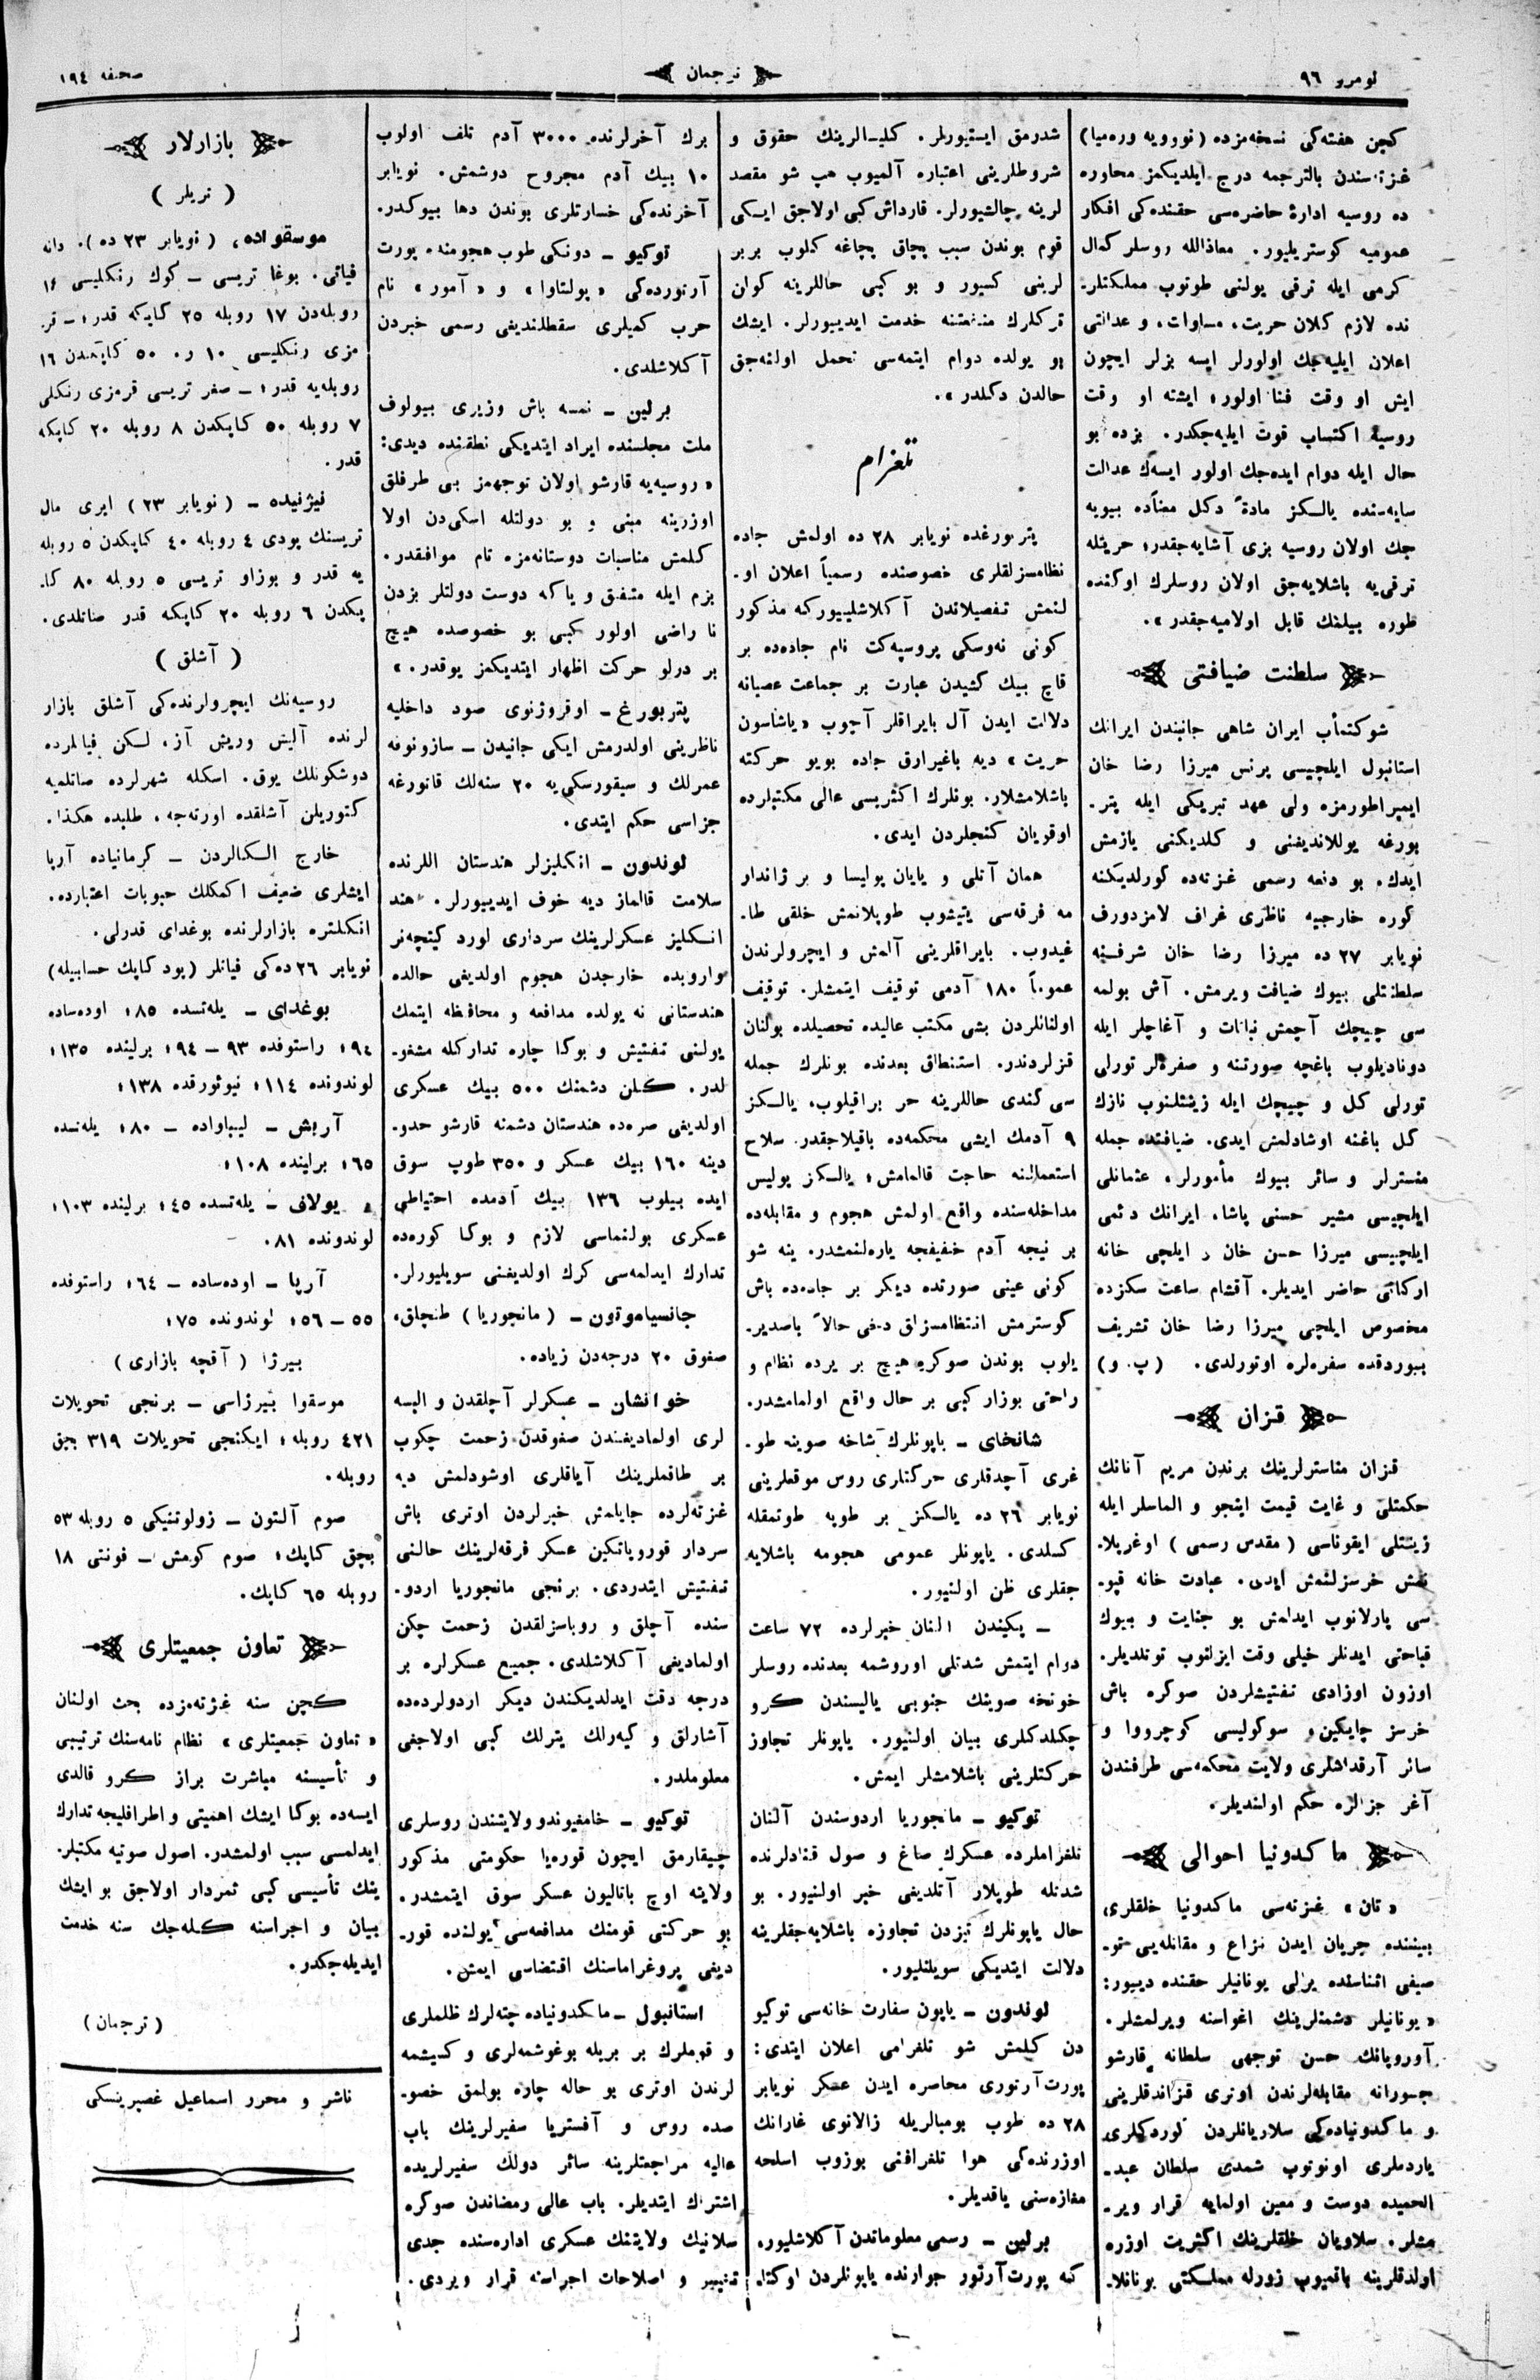 نومرو ٩٦
ترجمان
صحيفه ١٩٤
كچن هفته‌كى نسخه‌مزده (نوويه ورەميا)
غزته‌سندن بالترجمه درج ايلديكمز محاوره
ده روسيه ادارۀ حاضره‌سى حقنده‌كى افكار
عموميه كوستريليور. معاذالله روسلر كمال
كرمى ايله ترقى يولنى طوتوب مملكتلر-
نده لازم كلان حريت، مساوات، و عدالتى
اعلان ايليه‌جك اولورلر ايسه بزلر ايچون
ايش او وقت فنا اولور؛ ايشته او وقت
روسيه اكتساب قوت ايليه‌جكدر. بزده بو
حال ايله دوام ايده‌جك اولور ايسەك عدالت
سايه‌سنده يالـكز مادةً دكل معناًده بيويه
جك اولان روسيه بزى آشايه‌جقدر؛ حريتله
ترقىيه باشلايه‌جق اولان روسلرك اوكنده
طوره بيلمك قابل اولاميه‌جقدر».
سلطنت ضيافتى
شوكتمآب ايران شاهى جانبندن ايرانك
استانبول ايلچيسى پرنس ميرزا رضا خان
ايمپراطورمزه ولى عهد تبريكى ايله پتر-
بورغه يوللانديغنى و كلديكنى يازمش
ايدك. بو دفعه رسمى غزته‌ده كورلديكنه
كوره خارجيه ناظرى غراف لامزدورف
نويابر ٢٧ ده ميرزا رضا خان شرفـنه
سلطنتلى بيوك ضيافت ويرمش. آش بولمه
سى چيچك آچمش نباتات و آغاچلر ايله
دوناديلوب باغچه صورتنه و صفره‌لر تورلى
تورلى كل و چيچك ايله زينتلنوب نازك
كل باغنه اوشادلمش ايدى. ضيافتده جمله
منسترلر و سائر بيوك مأمورلر، عثمانلى
ايلچيسى مشير حسنى پاشا، ايرانك دئمى
ايلچيسى ميرزا حسن خان و ايلچى خانه
اركانى حاضر ايديلر. آقشام ساعت سكزده
مخصوص ايلچى ميرزا رضا خان تشريف
بيوردقده سفره‌لره اوتورلدى. (پ. و)
قزان
قزان مناسترلرينك برندن مريم آنانك
حكمتلى و غايت قيمت اينجو و الماسلر ايله
زينتلى ايقوناسى (مقدس رسمى) اوغريلا-
نمش خرسزلنمش ايدى. عبادت خانه قپو-
سى پارلانوب ايدلمش بو جنايت و بيوك
قباحتى ايدنلر خيلى وقت ايزلنوب توتلديلر.
اوزون اوزادى تفتيشلردن صوكره باش
خرسز چايكين و سوكوليسى كوچرووا و
سائر آرقداشلرى ولايت محكمه‌سى طرفندن
آغر جزالره حكم اولنديلر.
ماكدونيا احوالى
«تان» غزته‌سى ماكدونيا خلقلرى
بيننده جريان ايدن نزاع و مقاتله‌يى تو-
صيفى اثناسنده يرلى يونانيلر حقنده دييور:
«يونانيلر دشمنلرينك اغواسنه ويرلمشلر.
آوروپانك حسن توجهى سلطانه قارشو
جسورانه مقابله‌لرندن اوترى قزاندقلرينى
و ماكدونياده‌كى سلاريانلردن كوردكلرى
ياردملرى اونوتوب شمدى سلطان عبد-
الحميده دوست و معين اولمايه قرار وير-
مشلر. سلاويان خلقلرينك اكثريت اوزره
اولدقلرينه باقميوب زورله مملـكتى يونانلا-
شدرمق ايستيورلر. كليـالرينك حقوق و
شروطلرينى اعتباره آلميوب هپ شو مقصد
لرينه چالشيورلر. قارداش كبى اولاجق ايـكى
قوم بوندن سبب پچاق پچاغه كلوب بربر
لرينى كسيور و بو كبى حاللرينه كوان
تركلرك منفعتنه خدمت ايديبورلر. ايشك
بو يولده دوام ايتمه‌سى تحمل اولنه‌جق
حالدن دكلدر».
تلغرام
پتربورغده نويابر ٢٨ ده اولمش جاده
نظامسزلقلرى خصوصنده رسمياً اعلان او-
لنمش تفصيلاتدن آكلاشلييوركه مذكور
كونى نه‌وسكى پروسپه‌كت نام جاده‌ده بر
قاچ بيك كشيدن عبارت بر جماعت عصيانه
دلالت ايدن آل بايراقلر آچوب «ياشاسون
حريت» ديه باغيرارق جاده بويو حركته
باشلامشلار. بونلرك اكثريسى عالى مكتبلرده
اوقويان كنجلردن ايدى.
همان آتلى و يايان پوليسا و بر ژاندار
مه فرقه‌سى يتيشوب طوپلانمش خلقى طا-
غيدوب. بايراقلرينى آلمش و ايچرولرندن
عموماً ١٨٠ آدمى توقيف ايتمشلر. توقيف
اولنانلردن بشى مكتب عاليده تحصيلده بولنان
قزلردندر. استنطاق بعدنده بونلرك جمله
سى كندى حاللرينه حر براقيلوب، يالـكز
٩ آدمك ايشى محكمه‌ده باقيلاجقدر. سلاح
استعمالـنه حاجت قالمامش؛ يالـكز پوليس
مداخله‌سنده واقع اولمش هجوم و مقابله‌ده
بر نيجه آدم خفيفجه ياره‌لنمشدر. ينه شو
كونى عينى صورتده ديكر بر جاده‌ده باش
كوسترمش انتظامسزلق دخى حالاً باصدير-
يلوب بوندن صوكره هيچ بر يرده نظام و
راحتى بوزار كبى بر حال واقع اولمامشدر.
شانخاى – ياپونلرك شاخه صوينه طو-
غرى آچدقلرى حركتلرى روس موقعلرينى
نويابر ٢٦ ده يالـكز بر طوپه طوتمقله
كسلدى. ياپونلر عمومى هجومه باشلايه
جقلرى ظن اولنيور.
– پكيندن النان خبرلرده ٧٢ ساعت
دوام ايتمش شدتلى اوروشمه بعدنده روسلر
خونخه صوينك جنوبى ياليسندن كرو
چكلدكلرى بيان اولنيور. ياپونلر تجاوز
حركتلرينى باشلامشلر ايمش.
توكيو – مانجوريا اردوسندن آلنان
تلغراملرده عسكرك صاغ و صول قنادلرنده
شدتله طوپلار آتلديغى خبر اولنيور. بو
حال ياپونلرك تيزدن تجاوزه باشلايه‌جقلرينه
دلالت ايتديكى سويلنليور.
لوندون – ياپون سفارت خانه‌سى توكيو
دن كلمش شو تلغرامى اعلان ايتدى:
پورت‌آرتورى محاصره ايدن عسكر نويابر
٢٨ ده طوپ بومبالريله زالاتوى غارانك
اوزرنده‌كى هوا تلغرافنى بوزوب اسلحه
مغازه‌سنى ياقديلر.
برلين – رسمى معلوماتدن آكلاشليور،
كه پورت‌آرتور جوارنده ياپونلردن اوكتا-
برك آخرلرنده ٣٠٠٠ آدم تلف اولوب
١٠ بيك آدم مجروح دوشمش. نويابر
آخرنده‌كى خسارتلرى بوندن دها بيوكدر.
توكيو – دونكى طوپ هجومنه، پورت
آرتورده‌كى «پولتاوا» و «آمور» نام
حرب كميلرى سقطلنديغى رسمى خبردن
آكلاشلدى.
برلين – نمسه باش وزيرى بيولوف
ملت مجلسنده ايراد ايتديكى نطقنده ديدى:
«روسيه‌يه قارشو اولان توجهمز بى طرفلق
اوزرينه مبنى و بو دولتله اسكى‌دن اولا
كلمش مناسبات دوستانه‌مزه تام موافقدر.
بزم ايله متفق و ياكه دوست دولتلر بزدن
نا راضى اولور كبى بو خصوصده هيچ
بر درلو حركت اظهار ايتديكمز يوقدر.»
پتربورغ – اوقروژنوى صود داخليه
ناظرينى اولدرمش ايكى جانيدن – سازونوفه
عمرلك و سيقورسكى‌يه ٢٠ سنه‌لك قاتورغه
جزاسى حكم ايتدى.
لوندون – انكليزلر هندستان اللرنده
سلامت قالماز ديه خوف ايدييورلر. هند
انـكليز عسكرلرينك سردارى لورد كيتچەنر
واروپده خارجدن هجوم اولديغى حالده
هندستانى نه يولده مدافعه و محافظه ايتمك
يولنى تفتيش و بوكا چاره تداركله مشغو-
لدر. كلن دشمنك ٥٠٠ بيك عسكرى
اولديغى صره‌ده هندستان دشمنه قارشو حدو-
دينه ١٦٠ بيك عسكر و ٣٥٠ طوپ سوق
ايده بيلوب ١٣٦ بيك آدمده احتياطى
عسكرى بولنماسى لازم و بوكا كوره‌ده
تدارك ايدلمه‌سى كرك اولديغنى سويليورلر.
جانسياموتون – (مانجوريا) طنچلق،
صفوق ٢٠ درجه‌دن زياده.
خوانشان – عسكرلر آچلقدن و البسه
لرى اولماديغندن صفوقدن زحمت چكوب
بر طاقملرينك آياقلرى اوشودلمش ديه
غزته‌لرده جايلمش خبرلردن اوترى باش
سردار قوروپاتكين عسكر فرقه‌لرينك حالنى
تفتيش ايتدردى. برنجى مانجوريا اردو-
سنده آچلق و روباسزلقدن زحمت چكن
اولماديغى آكلاشلدى. جميع عسكرلره بر
درجه دقت ايدلديكندن ديكر اردولرده‌ده
آشارلق و كيه‌رلك يترلك كبى اولاجغى
معلوملدر.
توكيو – خامغيوندو ولايتندن روسلرى
چيقارمق ايچون قوره‌يا حكومتى مذكور
ولايته اوچ باتاليون عسكر سوق ايتمشدر.
بو حركتى قومنك مدافعه‌سى يولنده قور-
ديغى پروغراماسنك اقتضاسى ايمش.
استانبول – ماكدونياده چته‌لرك ظلملرى
و قوملرك بر بريله بوغوشمه‌لرى و كسيشمه
لرندن اوترى بو حاله چاره بولمق خصو-
صده روس و آفستريا سفيرلرينك باب
عاليه مراجعتلرينه سائر دولك سفيرلريده
اشتراك ايتديلر. باب عالى رمضاندن صوكره
سلانيك ولايتنك عسكرى اداره‌سنده جدى
تغيير و اصلاحات اجراسنه قرار ويردى.
بازارلار
(تريلر)
موسقوادە، (نويابر ٢٣ ده). دانه
فياتى. بوغا تريسى – كوك رنكليسى ١٤
روبله‌دن ١٧ روبله ٢٥ كاپكه قدر؛ – قر-
مزى رنكليسى ١٠ ر. ٥٠ كاپكدن ١٦
روبله‌يه قدر؛ – صغر تريسى قرمزى رنكلى
٧ روبله ٥٠ كاپكدن ٨ روبله ٢٠ كاپكه
قدر.
نيژنيده – (نويابر ٢٣) ايرى مال
تريسنك پودى ٤ روبله ٤٠ كاپكدن ٥ روبله
يه قدر و بوزاو تريسى ٥ روبله ٨٠ كا-
پكدن ٦ روبله ٢٠ كاپكه قدر صاتلدى.
(آشلق)
روسيه‌نك ايچرولرنده‌كى آشلق بازار
لرنده آليش وريش آز، لـكن فياتلرده
دوشكونلك يوق. اسكله شهرلرده صاتلميه
كتوريلن آشلقده اورته‌جه، طلبده هكذا.
خارج الـكالردن – كرمانياده آرپا
ايشلرى ضعيف اكمكلك حبوبات اعتبارده.
انكلتره بازارلرنده بوغداى قدرلى.
نويابر ٢٦ده‌كى فياتلر (پود كاپك حسابيله)
بوغداى – يله‌تسده ٨٥؛ اوده‌ساده
٩٤؛ راستوفده ٩٣ – ٩٤؛ برلينده ١٣٥؛
لوندونده ١١٤؛ نيوثورقده ١٣٨؛
آرپش – ليباواده – ٨٠؛ يله‌تسده
٦٥؛ برلينده ١٠٨؛
يولاف – يله‌تسده ٤٥؛ برلينده ١٠٣؛
لوندونده ٨١.
آرپا – اوده‌ساده – ٦٤؛ راستوفده
٥٥ – ٥٦؛ لوندونده ٧٥؛
بيرژا (آقچه بازارى)
موسقوا بيرژاسى – برنجى تحويلات
٤٢١ روبله؛ ايكنجى تحويلات ٣١٩ بچق
روبله.
صوم آلتون – زولوتنيكى ٥ روبله ٥٣
بچق كاپك؛ صوم كومش – فونتى ١٨
روبله ٦٥ كاپك.
تعاون جمعيتلرى
كچن سنه غزته‌مزده بحث اولنان
«تعاون جمعيتلرى» نظام نامه‌سنك ترتيبى
و تأسيسنه مباشرت براز كرو قالدى
ايسه‌ده بوكا ايشك اهميتى و اطرافليجه تدارك
ايدلمسى سبب اولمشدر. اصول صوتيه مكتبلر-
ينك تأسيسى كبى ثمردار اولاجق بو ايشك
بيان و اجراسنه كله‌جك سنه خدمت
ايديله‌جكدر.
(ترجمان)
ناشر و محرر اسماعيل غصپرينسكى